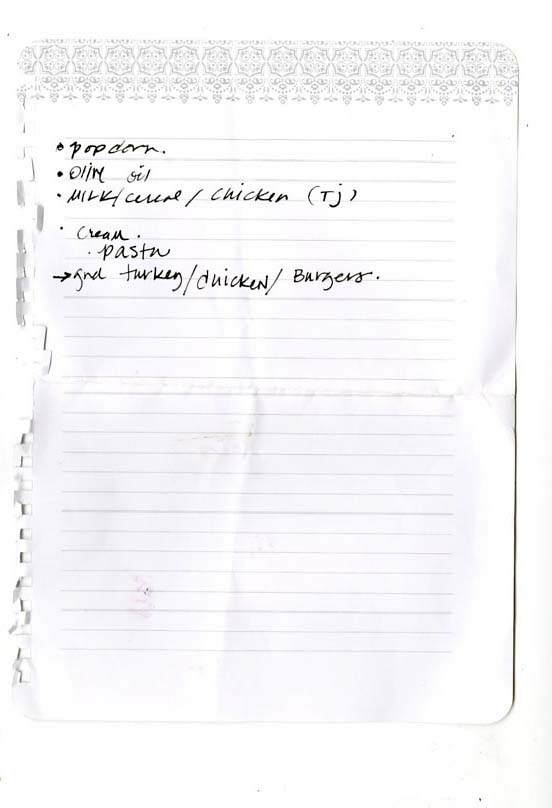 • popcorn.
• Olive oil
• Milk/cereal/chicken (TJ)
• Cream.
• pasta
→ gnd turkey/chicken/Burgers.